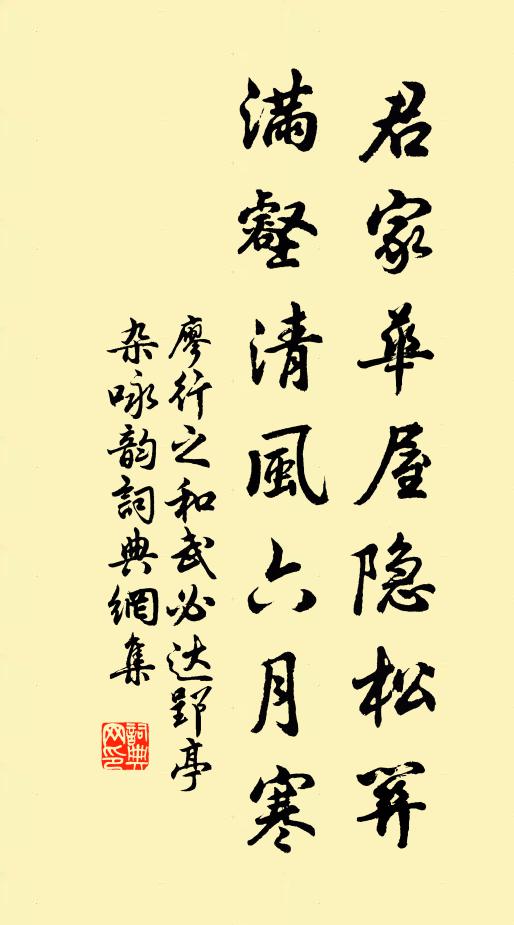 君家華屋隐松關
滿壑清風六月寒
廖行之和武必达郢亭
杂咏韵詞典網集
詞典
网印